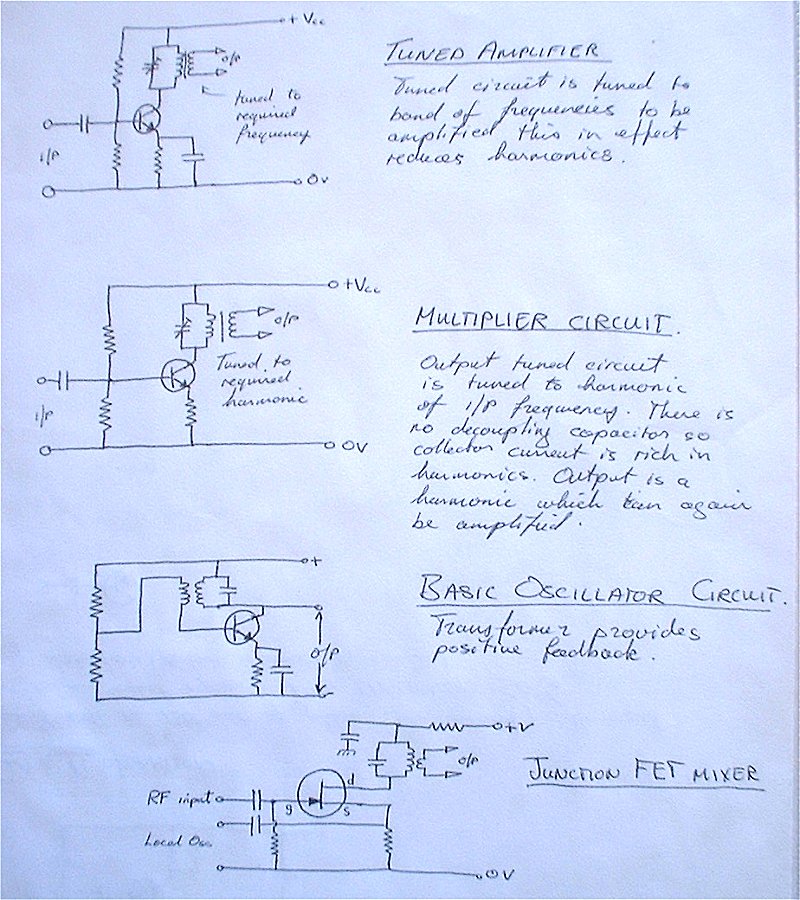 + Vcc
O/P
tuned to
required
frequency
I/P
Ov
TUNED AMPLIFIER
Tuned circuit is tuned to
band of frequencies to be
amplified this in effect
reduces harmonics.
+Vcc
O/P
Tuned to
required
harmonic
I/P
OV
MULTIPLIER CIRCUIT.
Output tuned circuit
is tuned to harmonic
of i/p frequency. There is
no decoupling capacitor so
collector current is rich in
harmonics. Output is a
harmonic which can again
be amplified.
+
O/P
-
BASIC OSCILLATOR CIRCUIT.
Transformer provides
positive feedback.
+V
O/P
d
RF input
g
s
Local Osc
OV
JUNCTION FET MIXER